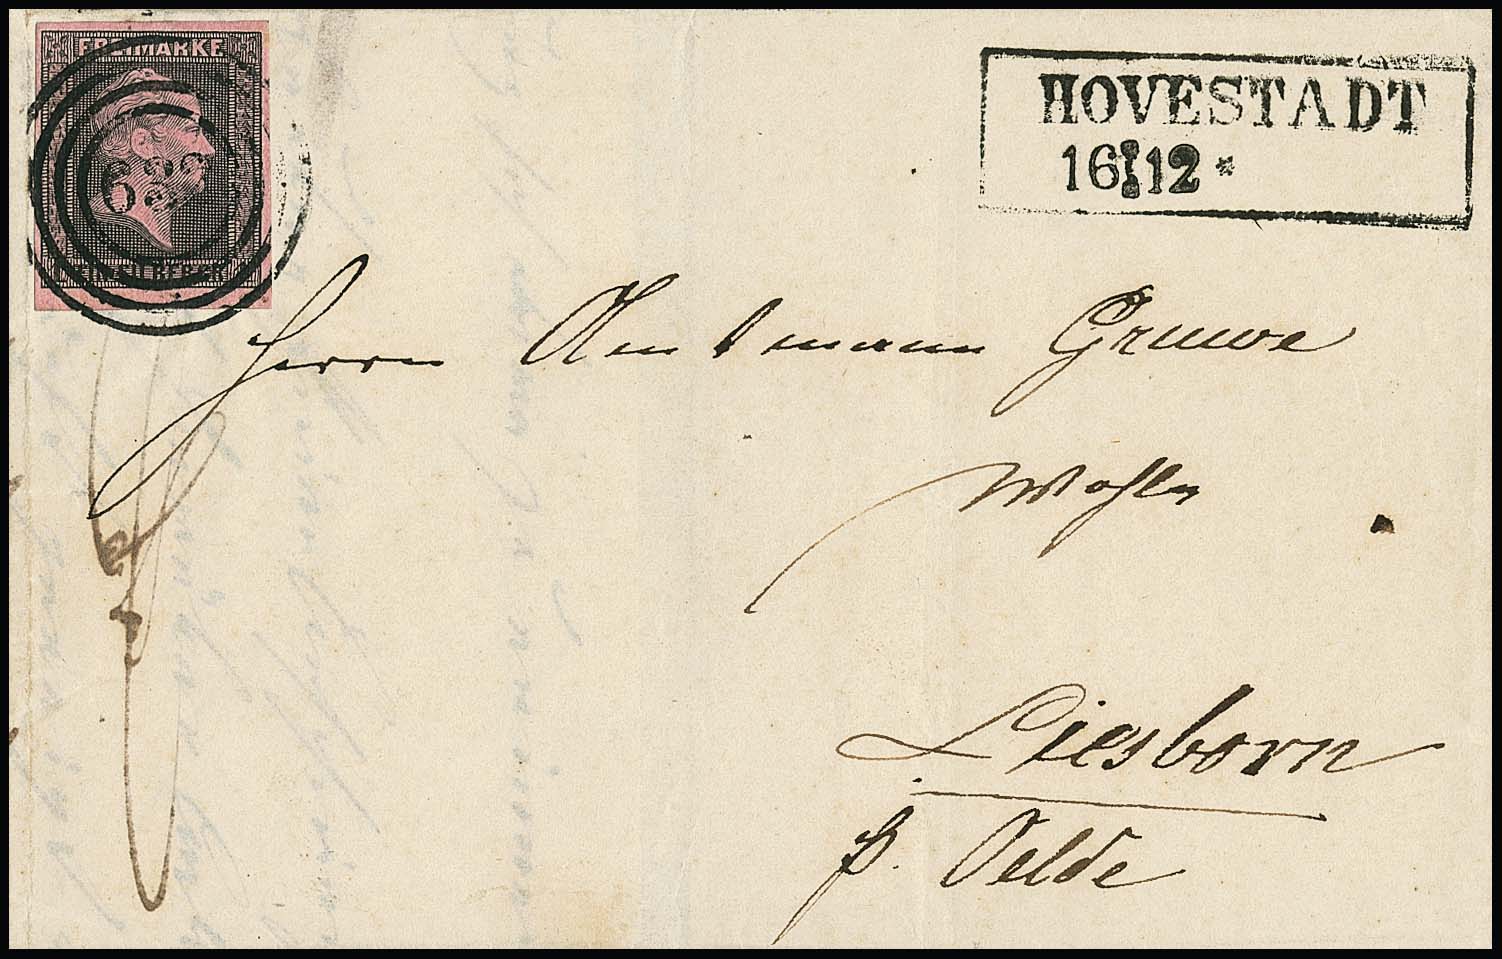 FREIMARKE
EIN SILBERGR
633
HOVESTADT
16 12 *
Herrn Amtmann Gruwe
Liesborn
p. Oelde